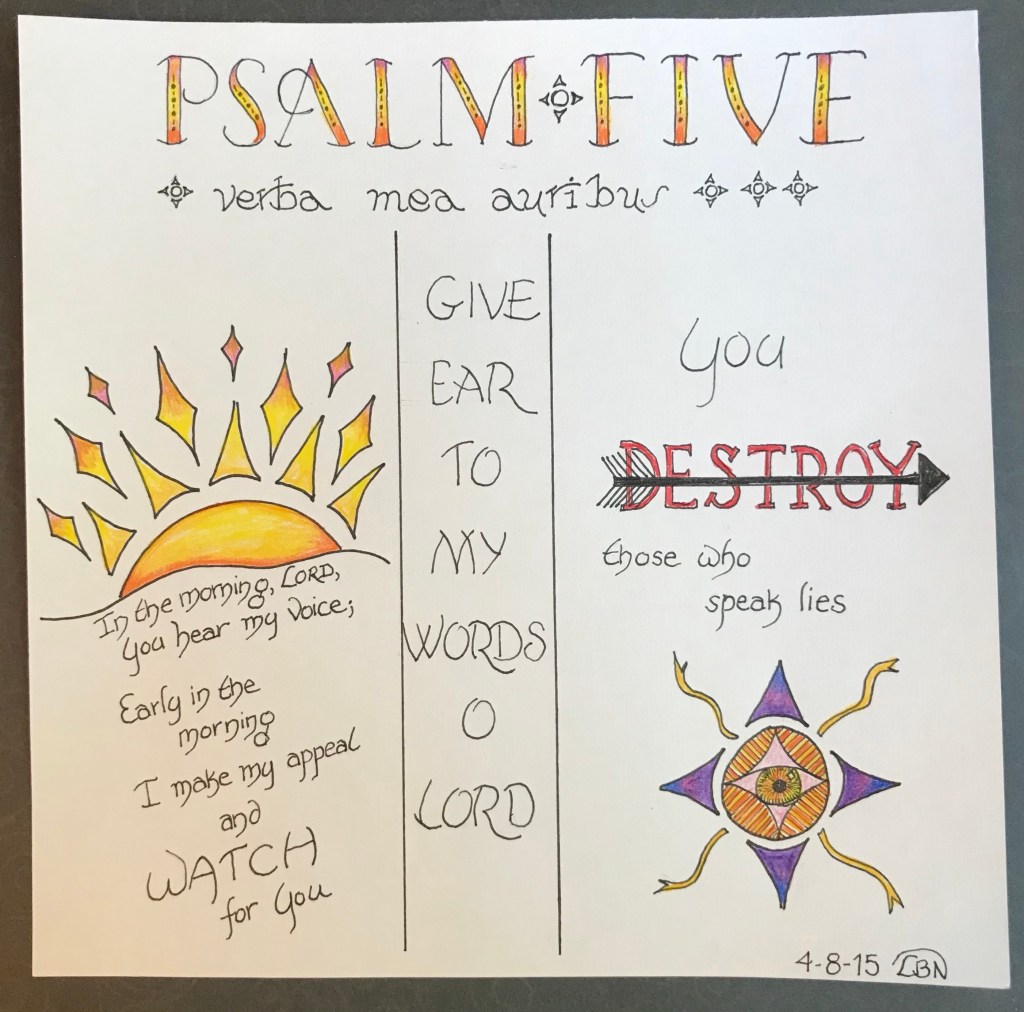 PSALM FIVE
verba mea auribus
In the morning, LORD,
you hear my voice;
Early in the
morning
I make my appeal
and
WATCH
for you
GIVE
EAR
TO
MY
WORDS
O
LORD
you
DESTROY
those who
speak lies
4-8-15 LBN